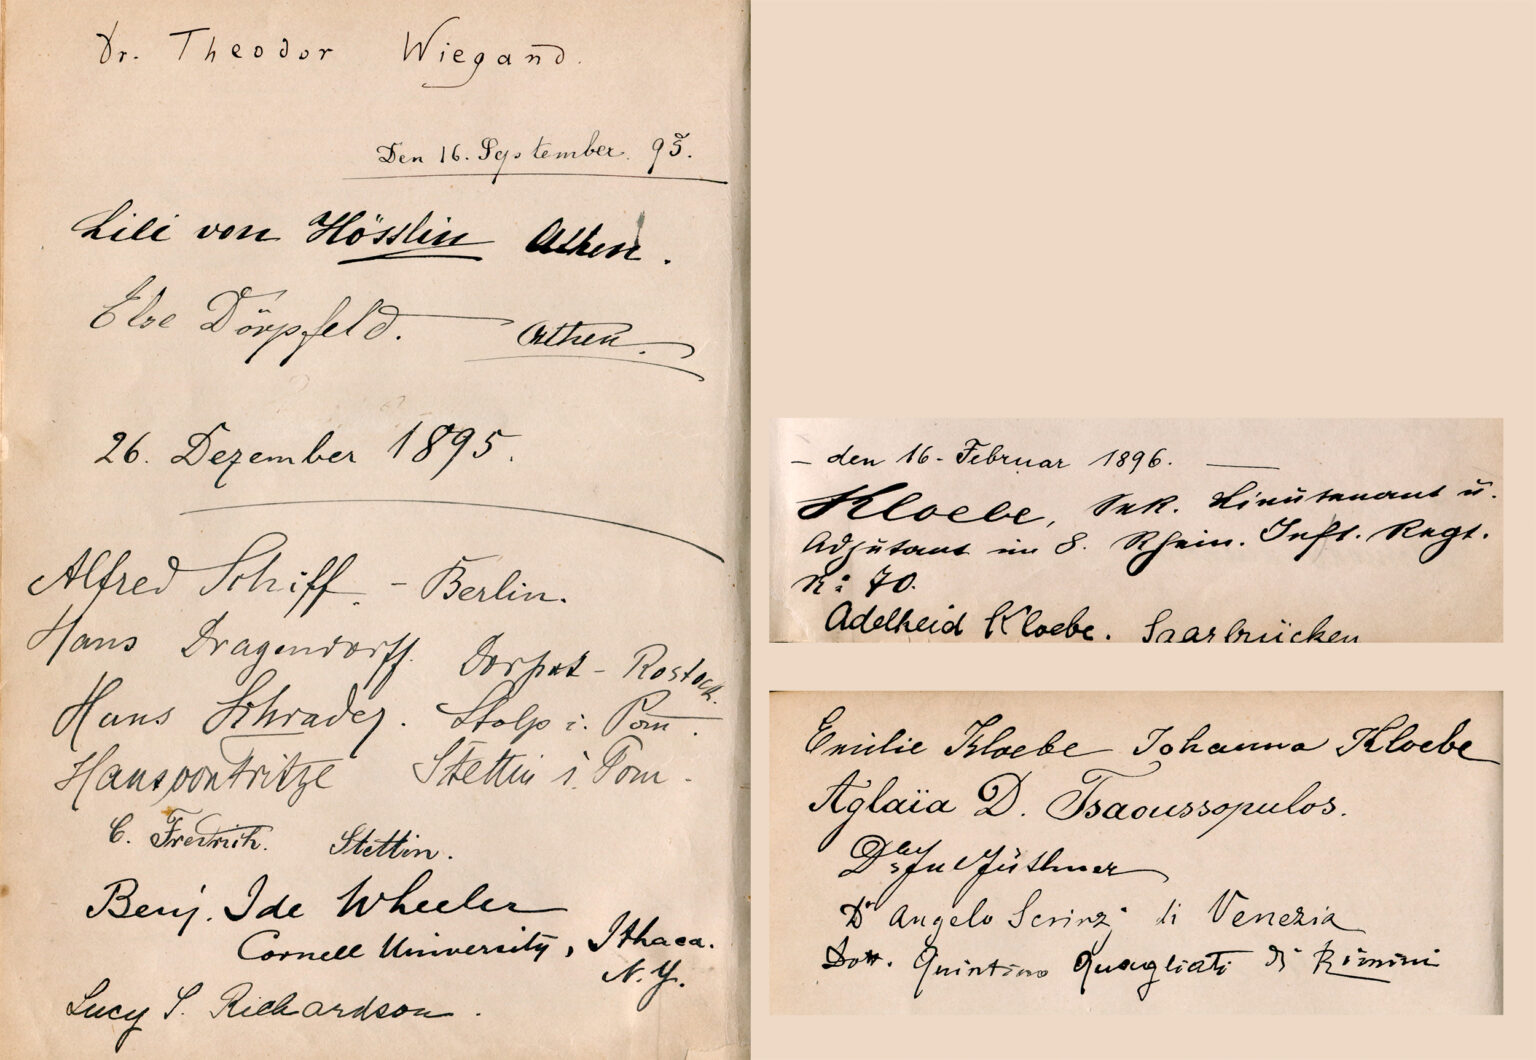 Dr. Theodor Wiegand.
Den 16. September. 95.
Lili von Hösslin Athen.
Else Dörpfeld. Athen.
26. Dezember 1895.
Alfred Schiff. - Berlin.
Hans Dragendorff. Dorpat - Rostock.
Hans Schrader. Stolp i. Pom.
Hans von Fritze Stettin i. Pom.
C. Fredrich. Stettin.
Benj. Ide Wheeler
Cornell University, Ithaca.
N.Y.
Lucy S. Richardson.
- den 16. Februar 1896. -
Kloebe, Sek. Lieutenant u.
Adjutant im 8. Rhein. Inft. Regt.
N: 70.
Adelheid Kloebe. Saarbrücken
Emilie Kloebe Johanna Kloebe
Aglaïa D. Tsaoussopulos.
Dr Jul Jüthner
Dr Angelo Scrinzi di Venezia
Dott. Quintino Quagliati di Rimini